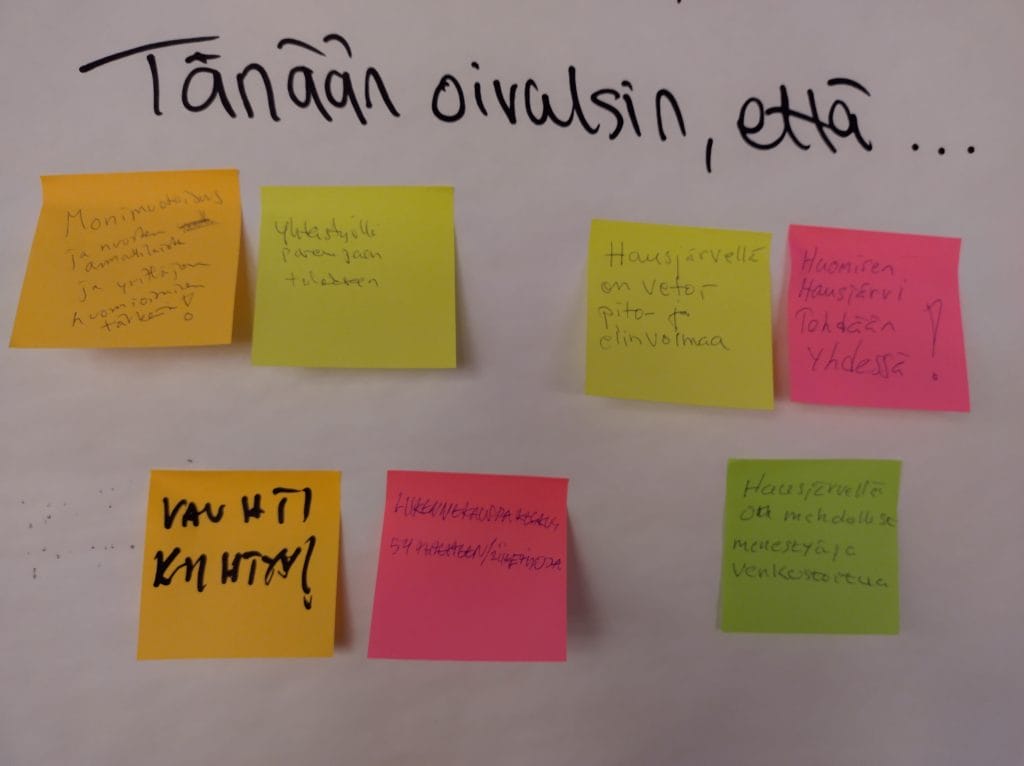 Tänään oivalsin, että ...
Monimuotoisuus
ja nuorten
ammattilaisten
ja yrittäjien
huomioiminen
tärkeää!
Yhteistyöllä
parempaan
tulokseen
Hausjärvellä
on veto-,
pito- ja
elinvoimaa
Huomisen
Hausjärvi
Tehdään
Yhdessä !
VAUHTI
KIIHTYY!
Hausjärvellä
on mahdollista
menestyä ja
verkostoitua